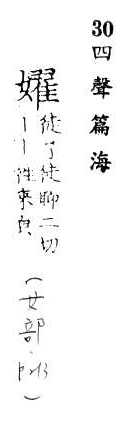 30 四聲篇海
嬥 徒了徒聊二切
丨丨往來皃
(女部